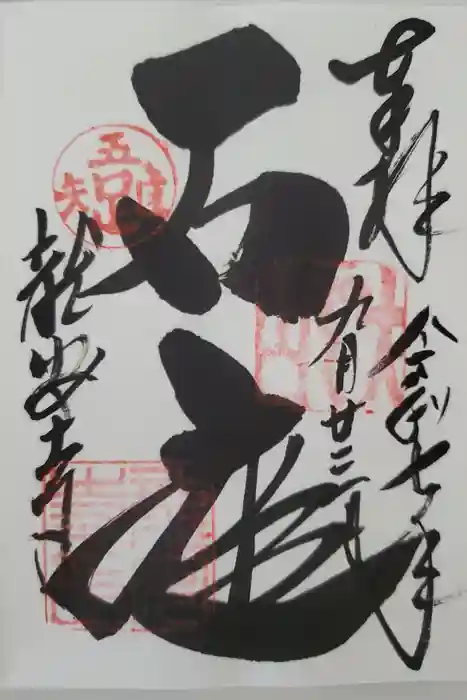 奉拝
令和七年
九月廿二日
石庭
吾唯足知
龍安寺